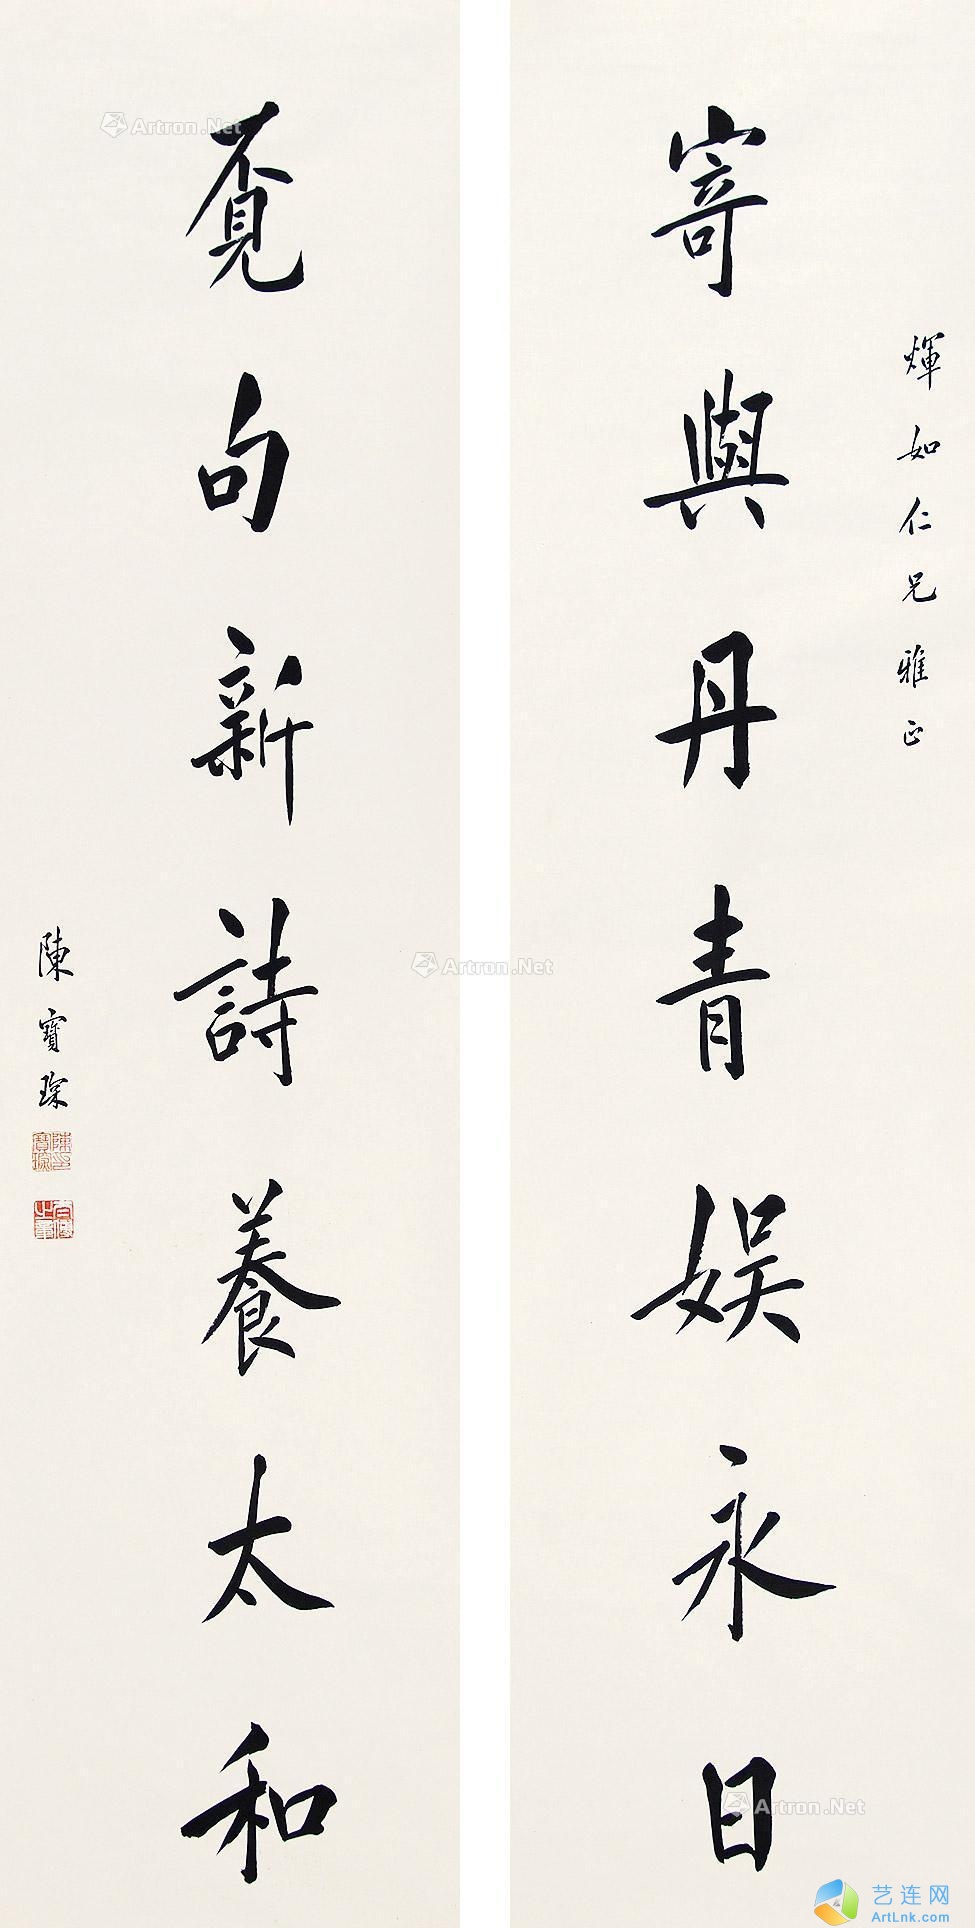 煇如仁兄雅正
寄興丹青娛永日
覔句新詩養太和
陳寶琛
陳印寶琛
Artron.Net
Artron.Net
Artron.Net
艺连网
ArtLnk.com